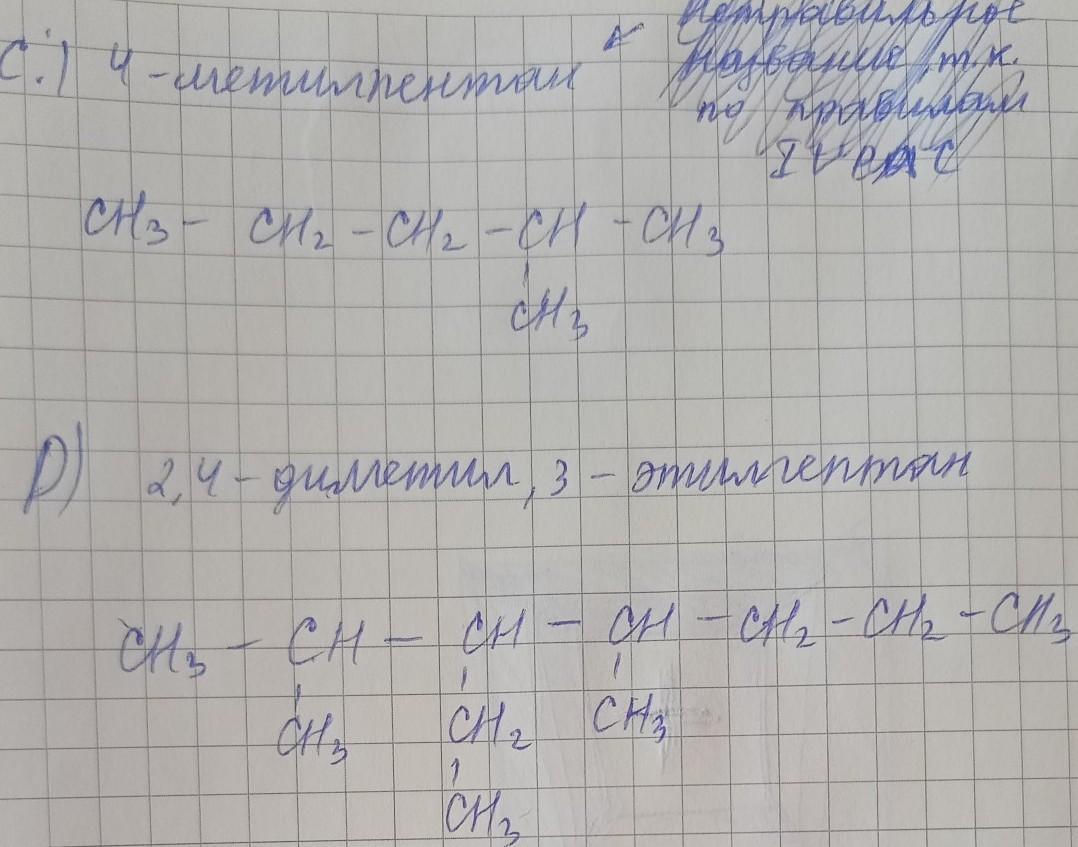 C.) 4-метилпентан
Неправильное
название, т.к.
по правилам
CH₃ - CH₂ - CH₂ - CH - CH₃
CH₃
D) 2,4-диметил, 3-этилгептан
CH₃ - CH - CH - CH - CH₂ - CH₂ - CH₃
CH₃ CH₂ CH₃
CH₃